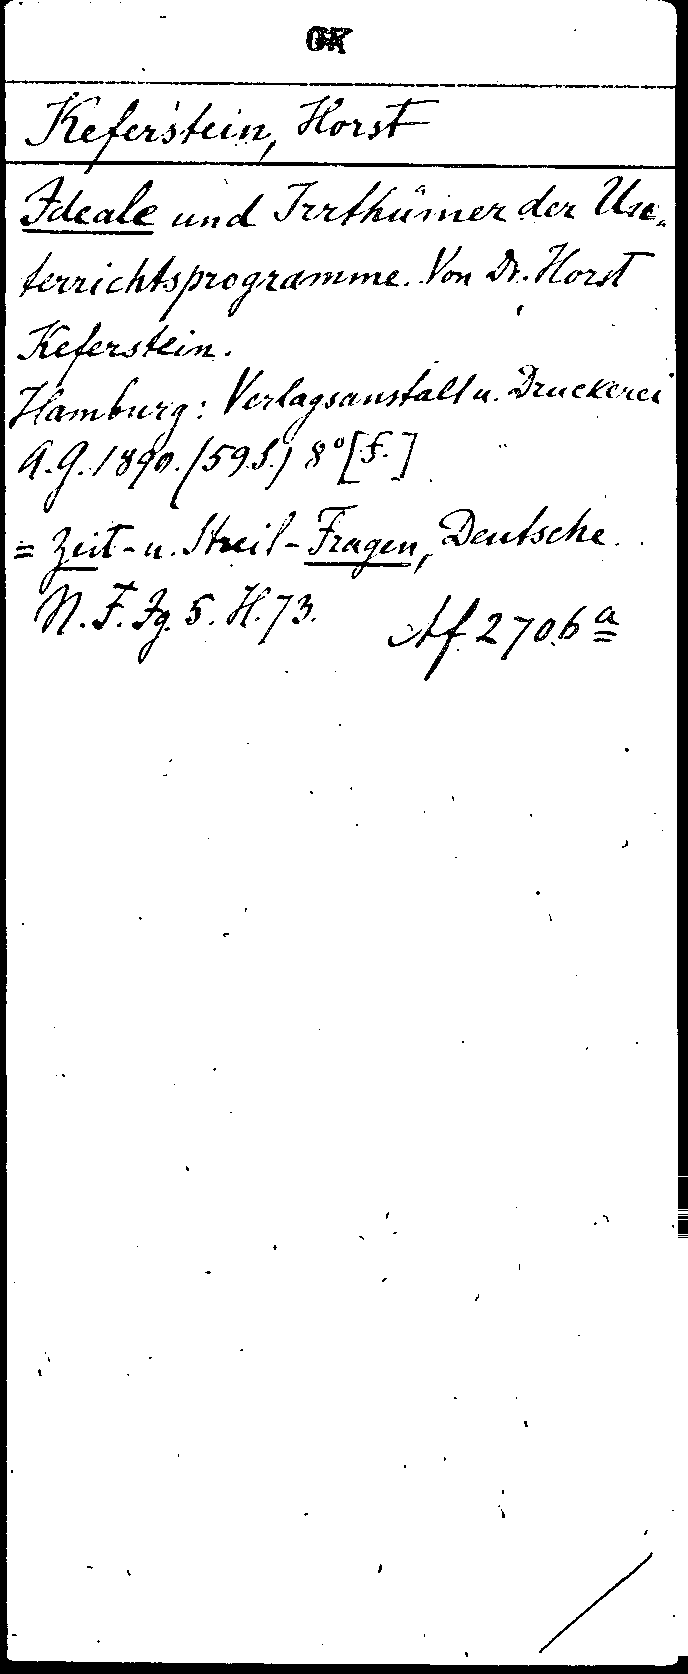 OK
Keferstein, Horst
Ideale und Irrthümer der Un-
terrichtsprogramme. Von Dr. Horst
Keferstein.
Hamburg: Verlagsanstalt u. Druckerei
A.G. 1890. (59 S.) 8° [f.]
= Zeit- u. Streit-Fragen, Deutsche.
N.F. Jg. 5. H. 73.
Af 2706 a